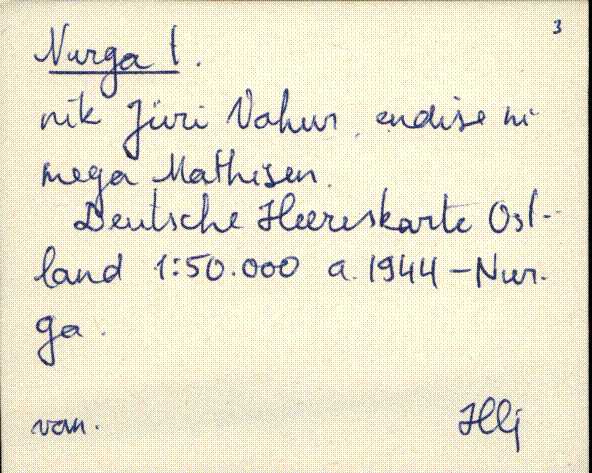 3
Nurga t.
nik Jüri Vahur, endise ni
mega Mathisen.
Deutsche Heereskarte Ost-
land 1:50.000 a. 1944 – Nur-
ga.
van. Hlj